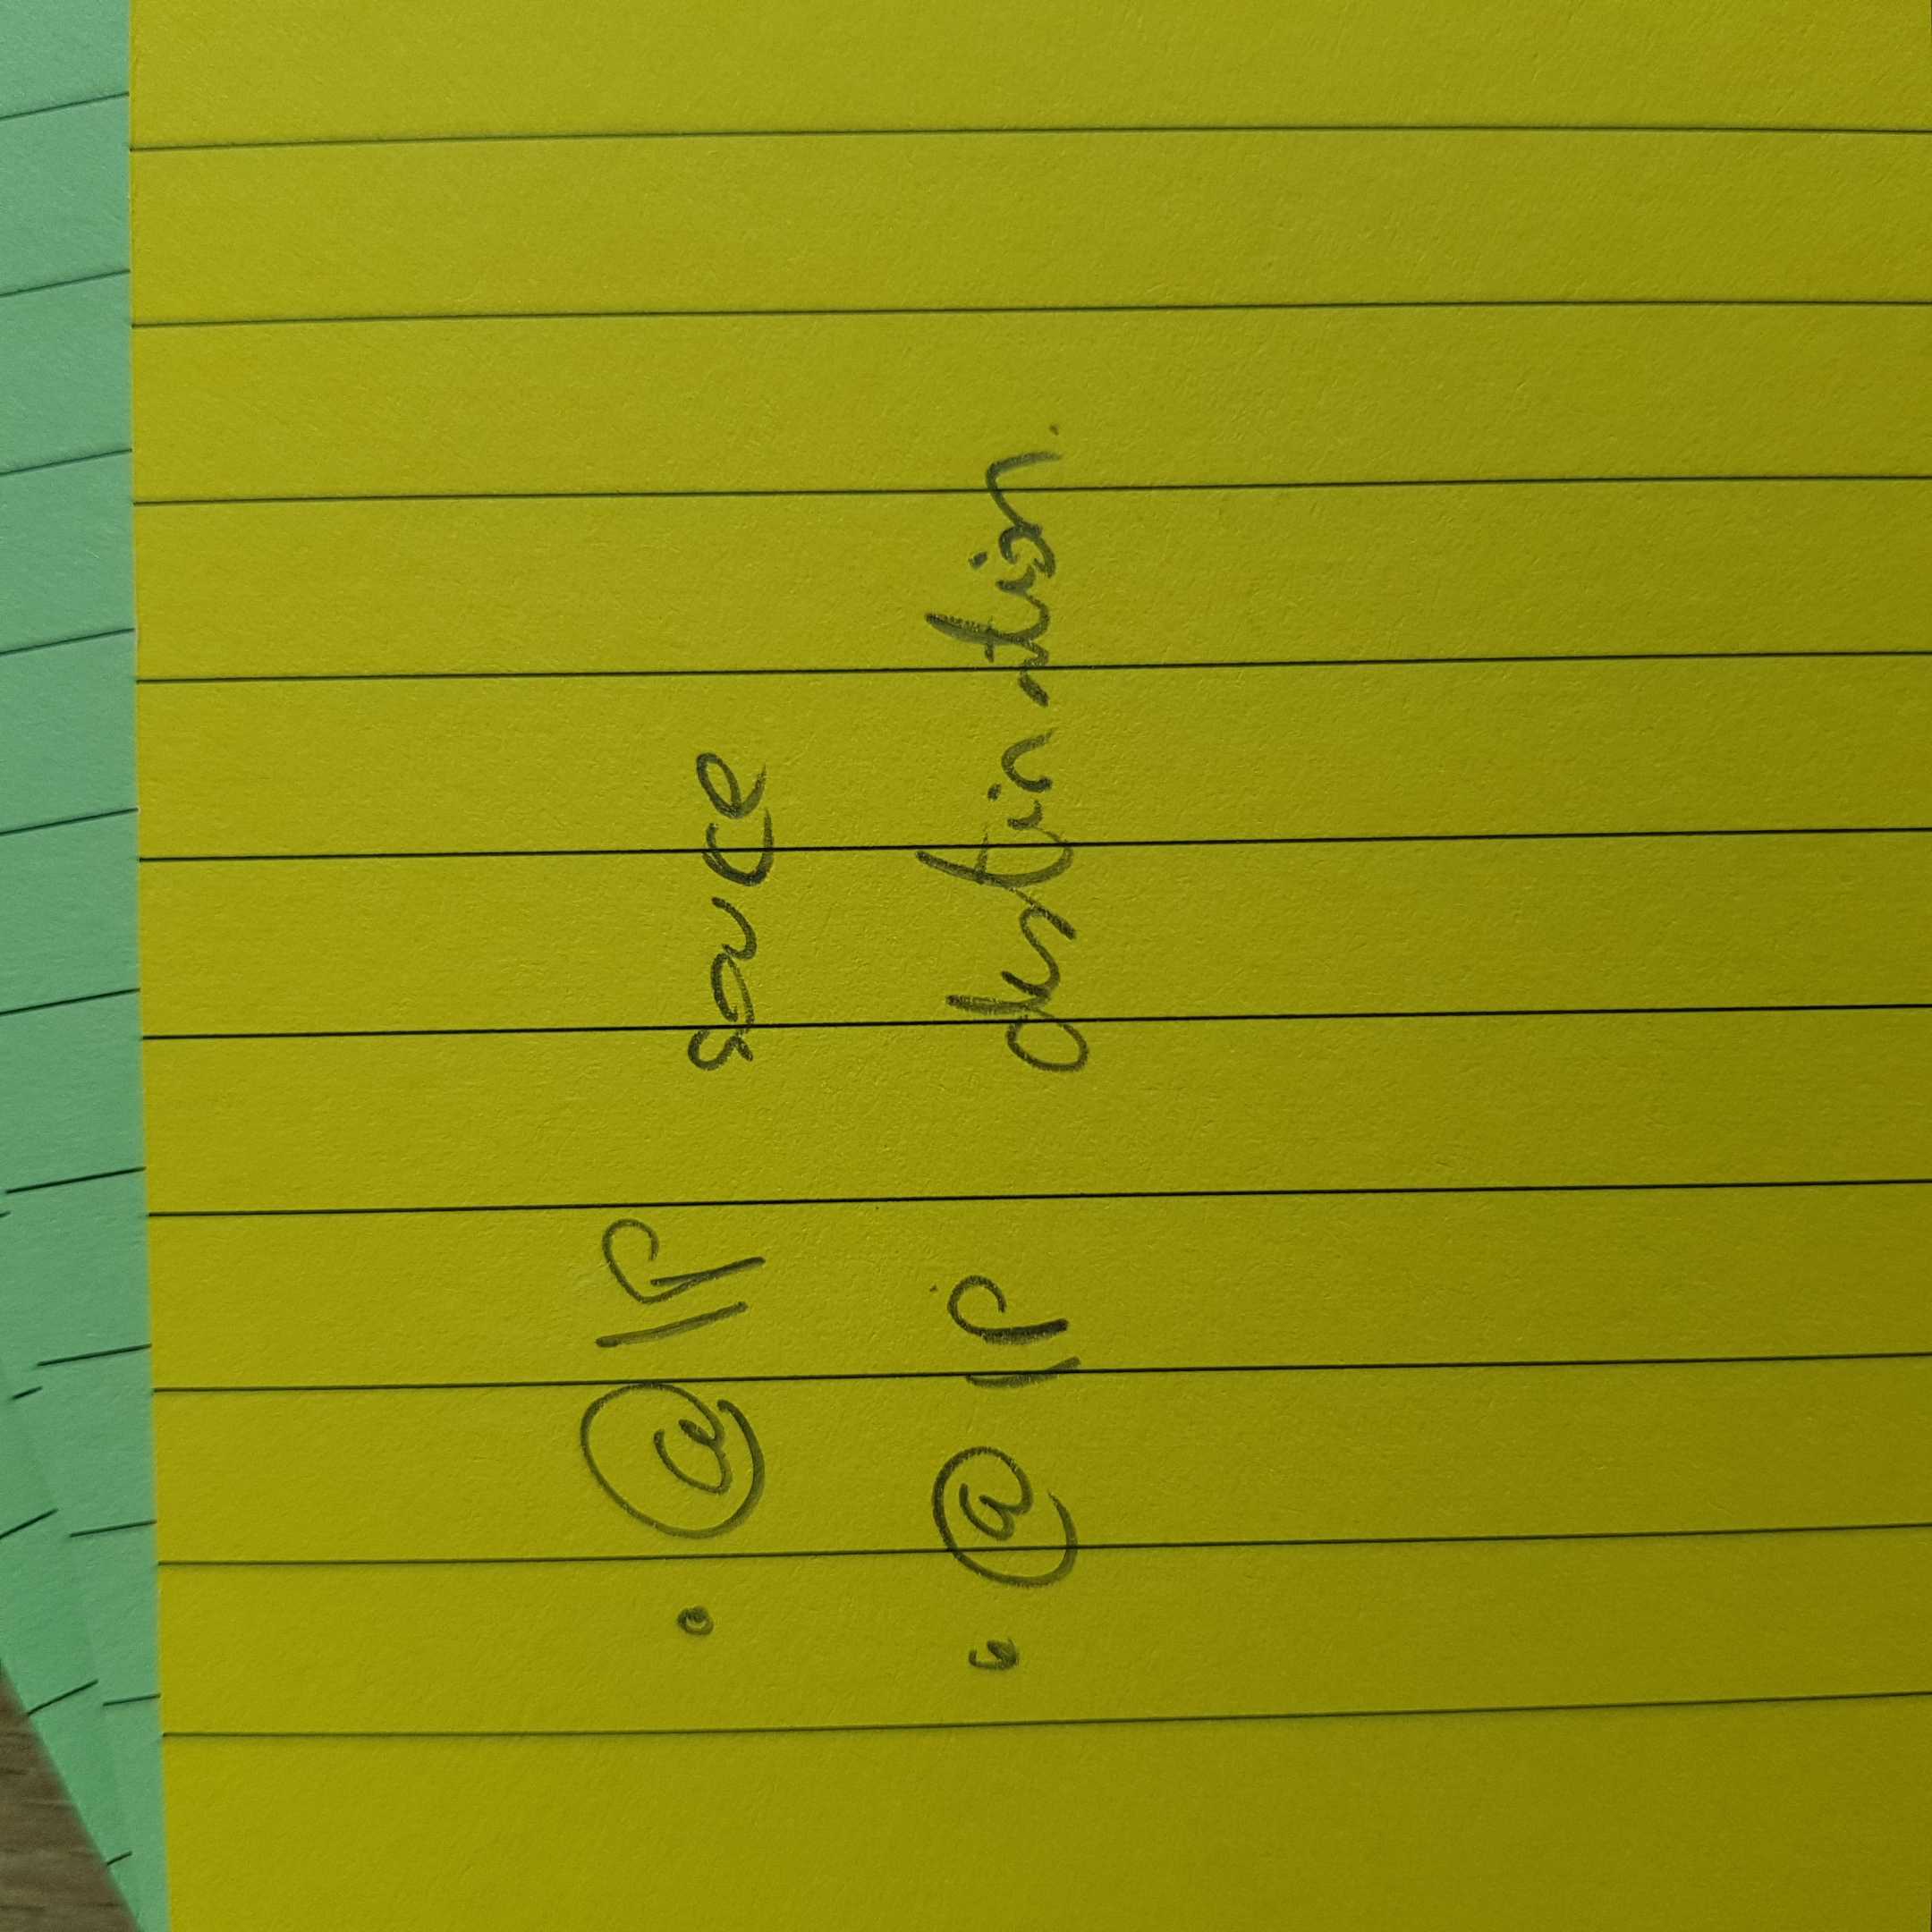 • @ IP source
• @ IP destination.